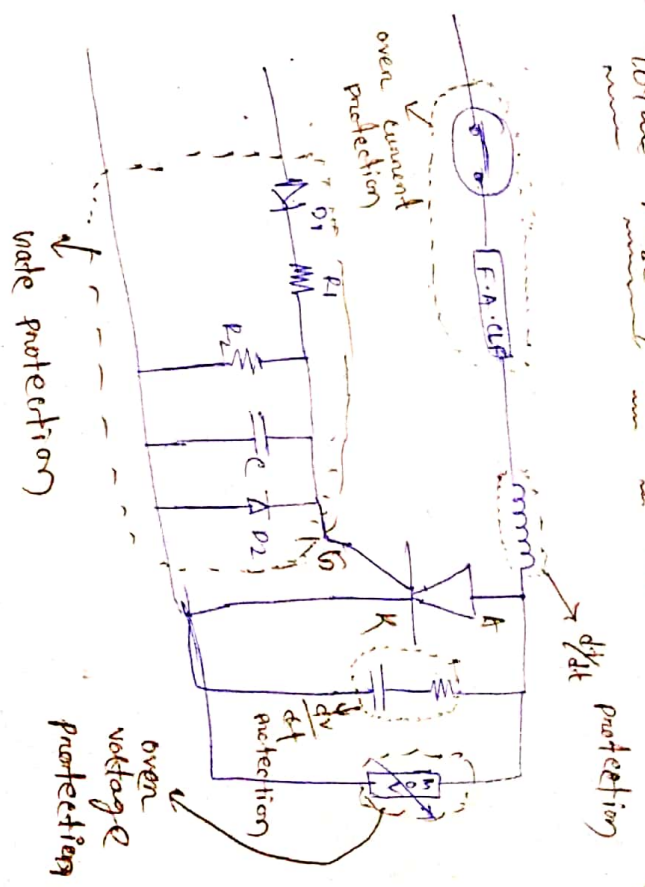 over current
protection
F.A.CLF
di/dt
protection
D1
R1
R2
C
D2
G
A
K
dv
dt
protection
over
voltage
protection
gate protection